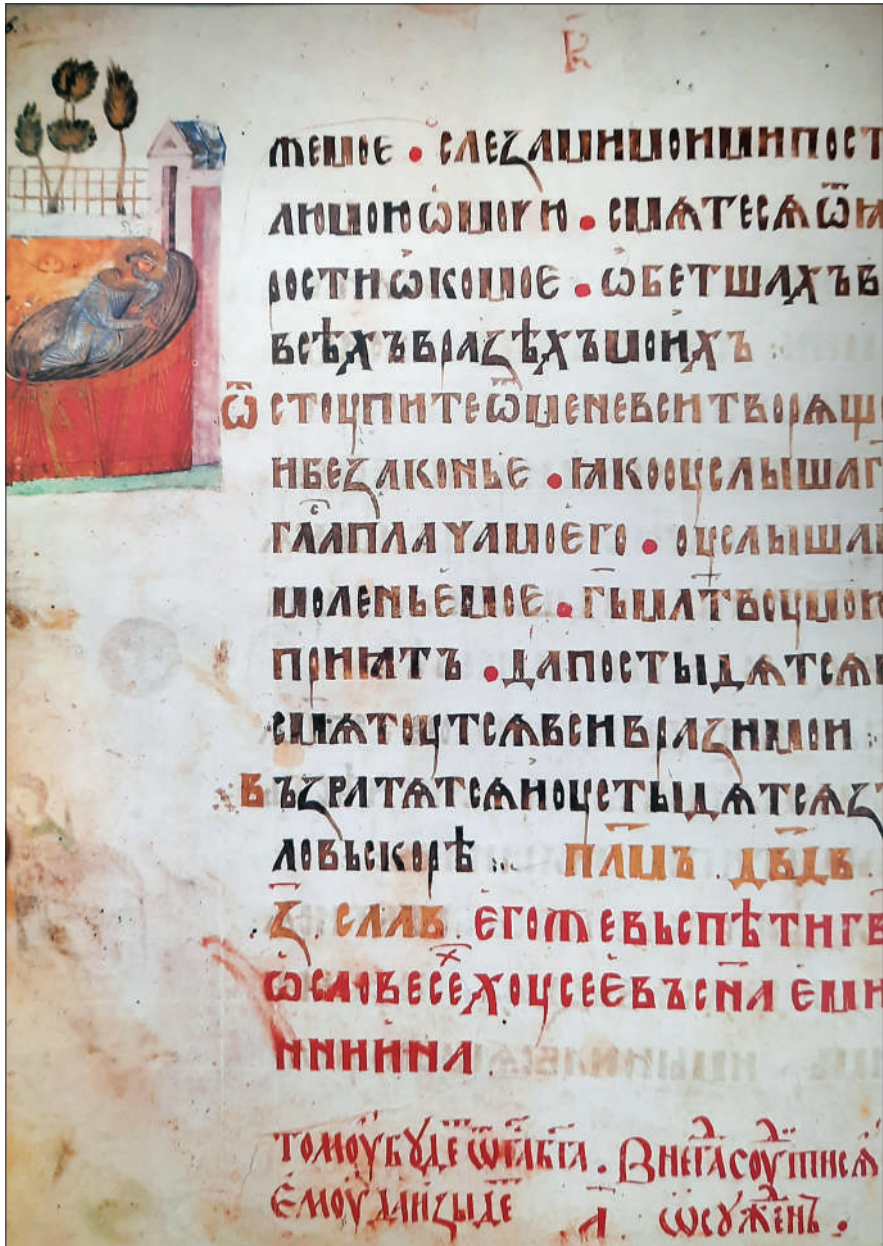 жемое • слезамимоимипост
люмоюѡмочю • смѧтесѧѿꙗ
ростиѡкомое • ѡбетшахъв
всѣхъвразѣхъмоихъ :
ѿстоупитеѿменевситворѧще
ибезаконье • ꙗкооуслышаг
гла҃плачамоего • оуслышаг
моленьемое • гь҃мл҃твоумою
приꙗтъ • дапостыдѧтсѧи
смѧтоутсѧвсивразимои :
възратѧтсѧиоустыдѧтсѧз
ловьскорѣ :. пл҃мъ дв҃дв
з҃ . слав . егожевьспѣтигв
ѡсловесехоусеевъсн҃а еми
ннинина .
томоубуде . Внегасоутисѧ
емоудаизыде л ѡсуженъ .